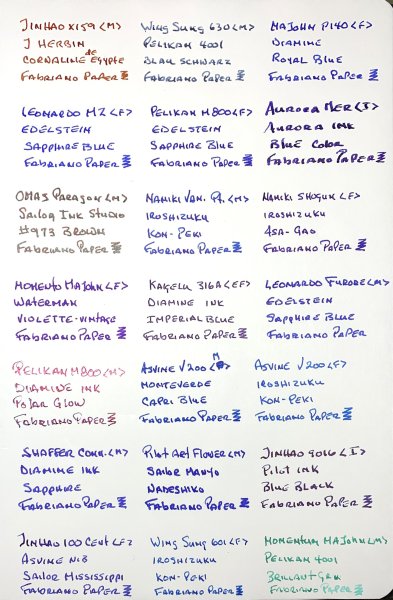 JINHAO X159 <M>
J HERBIN
CORNALINE de EGYPTE
FABRIANO PAPER
WING SUNG 630 <M>
PELIKAN 4001
BLAU SCHWARZ
FABRIANO PAPER
MAJOHN P140 <F>
DIAMINE
ROYAL BLUE
FABRIANO PAPER
LEONARDO MZ <F>
EDELSTEIN
SAPPHIRE BLUE
FABRIANO PAPER
PELIKAN M800 <F>
EDELSTEIN
SAPPHIRE BLUE
FABRIANO PAPER
AURORA MER <I>
AURORA INK
BLUE COLOR
FABRIANO PAPER
OMAS PARAGON <M>
SAILOR INK STUDIO
#973 BROWN
FABRIANO PAPER
NAMIKI VAN. PT. <M>
IROSHIZUKU
KON-PEKI
FABRIANO PAPER
NAMIKI SHOGUN <F>
IROSHIZUKU
ASA-GAO
FABRIANO PAPER
MOMENTO MAJOHN <F>
WATERMAN
VIOLETTE-VINTAGE
FABRIANO PAPER
KAKELU 316A <EF>
DIAMINE INK
IMPERIAL BLUE
FABRIANO PAPER
LEONARDO FURORE <M>
EDELSTEIN
SAPPHIRE BLUE
FABRIANO PAPER
PELIKAN M800 <M>
DIAMINE INK
POLAR GLOW
FABRIANO PAPER
ASVINE V200 M
MONTEVERDE
CAPRI BLUE
FABRIANO PAPER
ASVINE V200 <F>
IROSHIZUKU
KON-PEKI
FABRIANO PAPER
SHAFFER CONN. <M>
DIAMINE INK
SAPPHIRE
FABRIANO PAPER
PILOT ART FLOWER <M>
SAILOR MANYO
NADESHIKO
FABRIANO PAPER
JINHAO 9016 <I>
PILOT INK
BLUE BLACK
FABRIANO PAPER
JINHAO 100 CENT <F>
ASVINE NIB
SAILOR MISSISSIPPI
FABRIANO PAPER
WING SUNG 601 <F>
IROSHIZUKU
KON-PEKI
FABRIANO PAPER
MOMENTUM MAJOHN <M>
PELIKAN 4001
BRILLANT GRN
FABRIANO PAPER